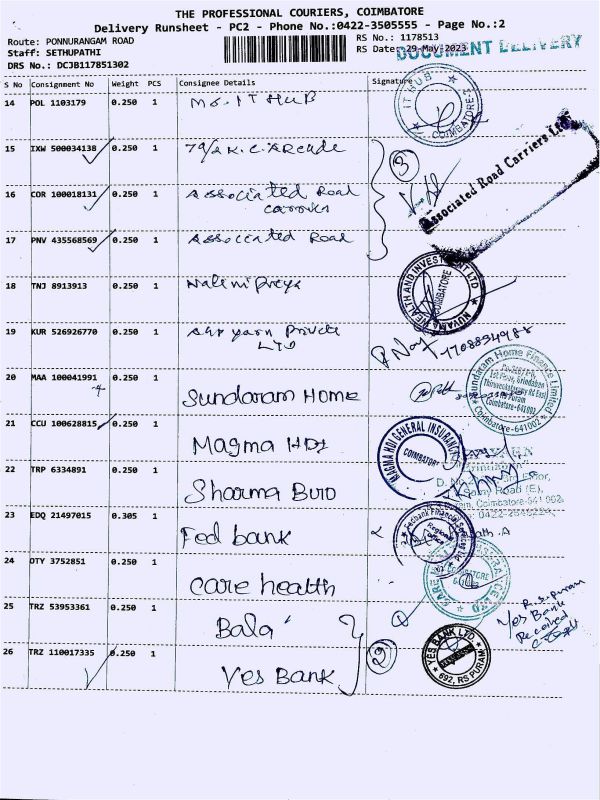 THE PROFESSIONAL COURIERS, COIMBATORE
Delivery Runsheet - PC2 - Phone No.:0422-3505555 - Page No.:2
Route: PONNURANGAM ROAD
RS No.: 1178513
Staff: SETHUPATHI
RS Date: 29-May-2023
DOCUMENT DELIVERY
DRS No.: DCJB117851302
S No Consignment No Weight PCS Consignee Details Signature
14 POL 1103179 0.250 1 Ms. IT HUB
IT HUB COIMBATORE
15 IXW 500034138 0.250 1 79/2 K.C. Arcade
3
Associated Road Carriers Ltd
16 COR 100018131 0.250 1 Associated Road
carrier
17 PNV 435568569 0.250 1 Associated Road
18 TNJ 8913913 0.250 1 Nalini Preya
NUVAMA WEALTH AND INVESTMENT LTD COIMBATORE
19 KUR 526926770 0.250 1 Private
LTD
20 MAA 100041991 0.250 1 Sundaram Home
Sundaram Home Finance Limited
1st Floor, Brindaban
Thiruvenkatasamy Rd East
R.S.Puram
Coimbatore-641002
Coimbatore-641002
21 CCU 100628815 0.250 1 Magma HDI
MAGMA HDI GENERAL INSURANCE
COIMBATORE
22 TRP 6334891 0.250 1 Sharma Buro
Road (E),
Coimbatore-641 002
23 EDQ 21497015 0.305 1 Fed bank
Fedbank Financial Services
Regional Office
24 OTY 3752851 0.250 1 Care health
25 TRZ 53953361 0.250 1 Bala
R.S. Puram
Yes Bank
Received
26 TRZ 110017335 0.250 1 Yes Bank
YES BANK LTD.
692, RS PURAM